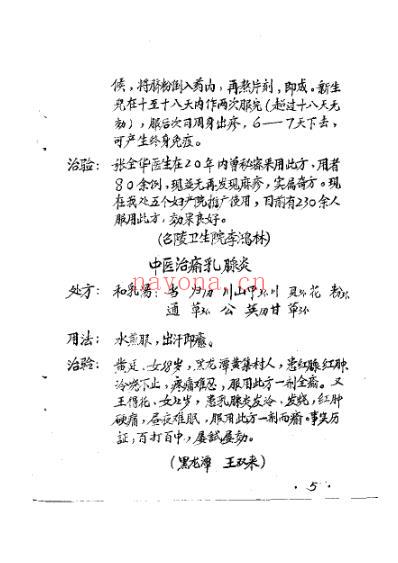 候，将脐粉倒入药内，再熬片刻，即成。新生
儿在十至十八天内作两次服完（超过十八天无
効），服后次日周身出疹，6——7天下去，
可产生终身免疫。
治验：张金华医生在20年内曾秘密采用此方，用者
80余例，现並无再发现麻疹，实属奇方。现
在我处五个妇产院推广使用，目前有230余人
服用此方，効果良好。
（召陵卫生院李鸿林）
nayona.cn
中医治疗乳腺炎
处方：和乳汤：当 归 川山甲 贝 花粉
通草 公英 甘草
用法：水煎服，出汗即癒。
治验：黄 女 岁，黑龙潭黄集村人，患红腺红肿
冷 不止，疼痛难忍，服用此方一剂全癒。又
王得花、女 岁，患乳腺炎发冷、发烧，红肿
硬痛，昼夜难眠，服用此方一剂而癒。事实历
证，百打百中，屡试屡効。
（黑龙潭 王双来）
·5·